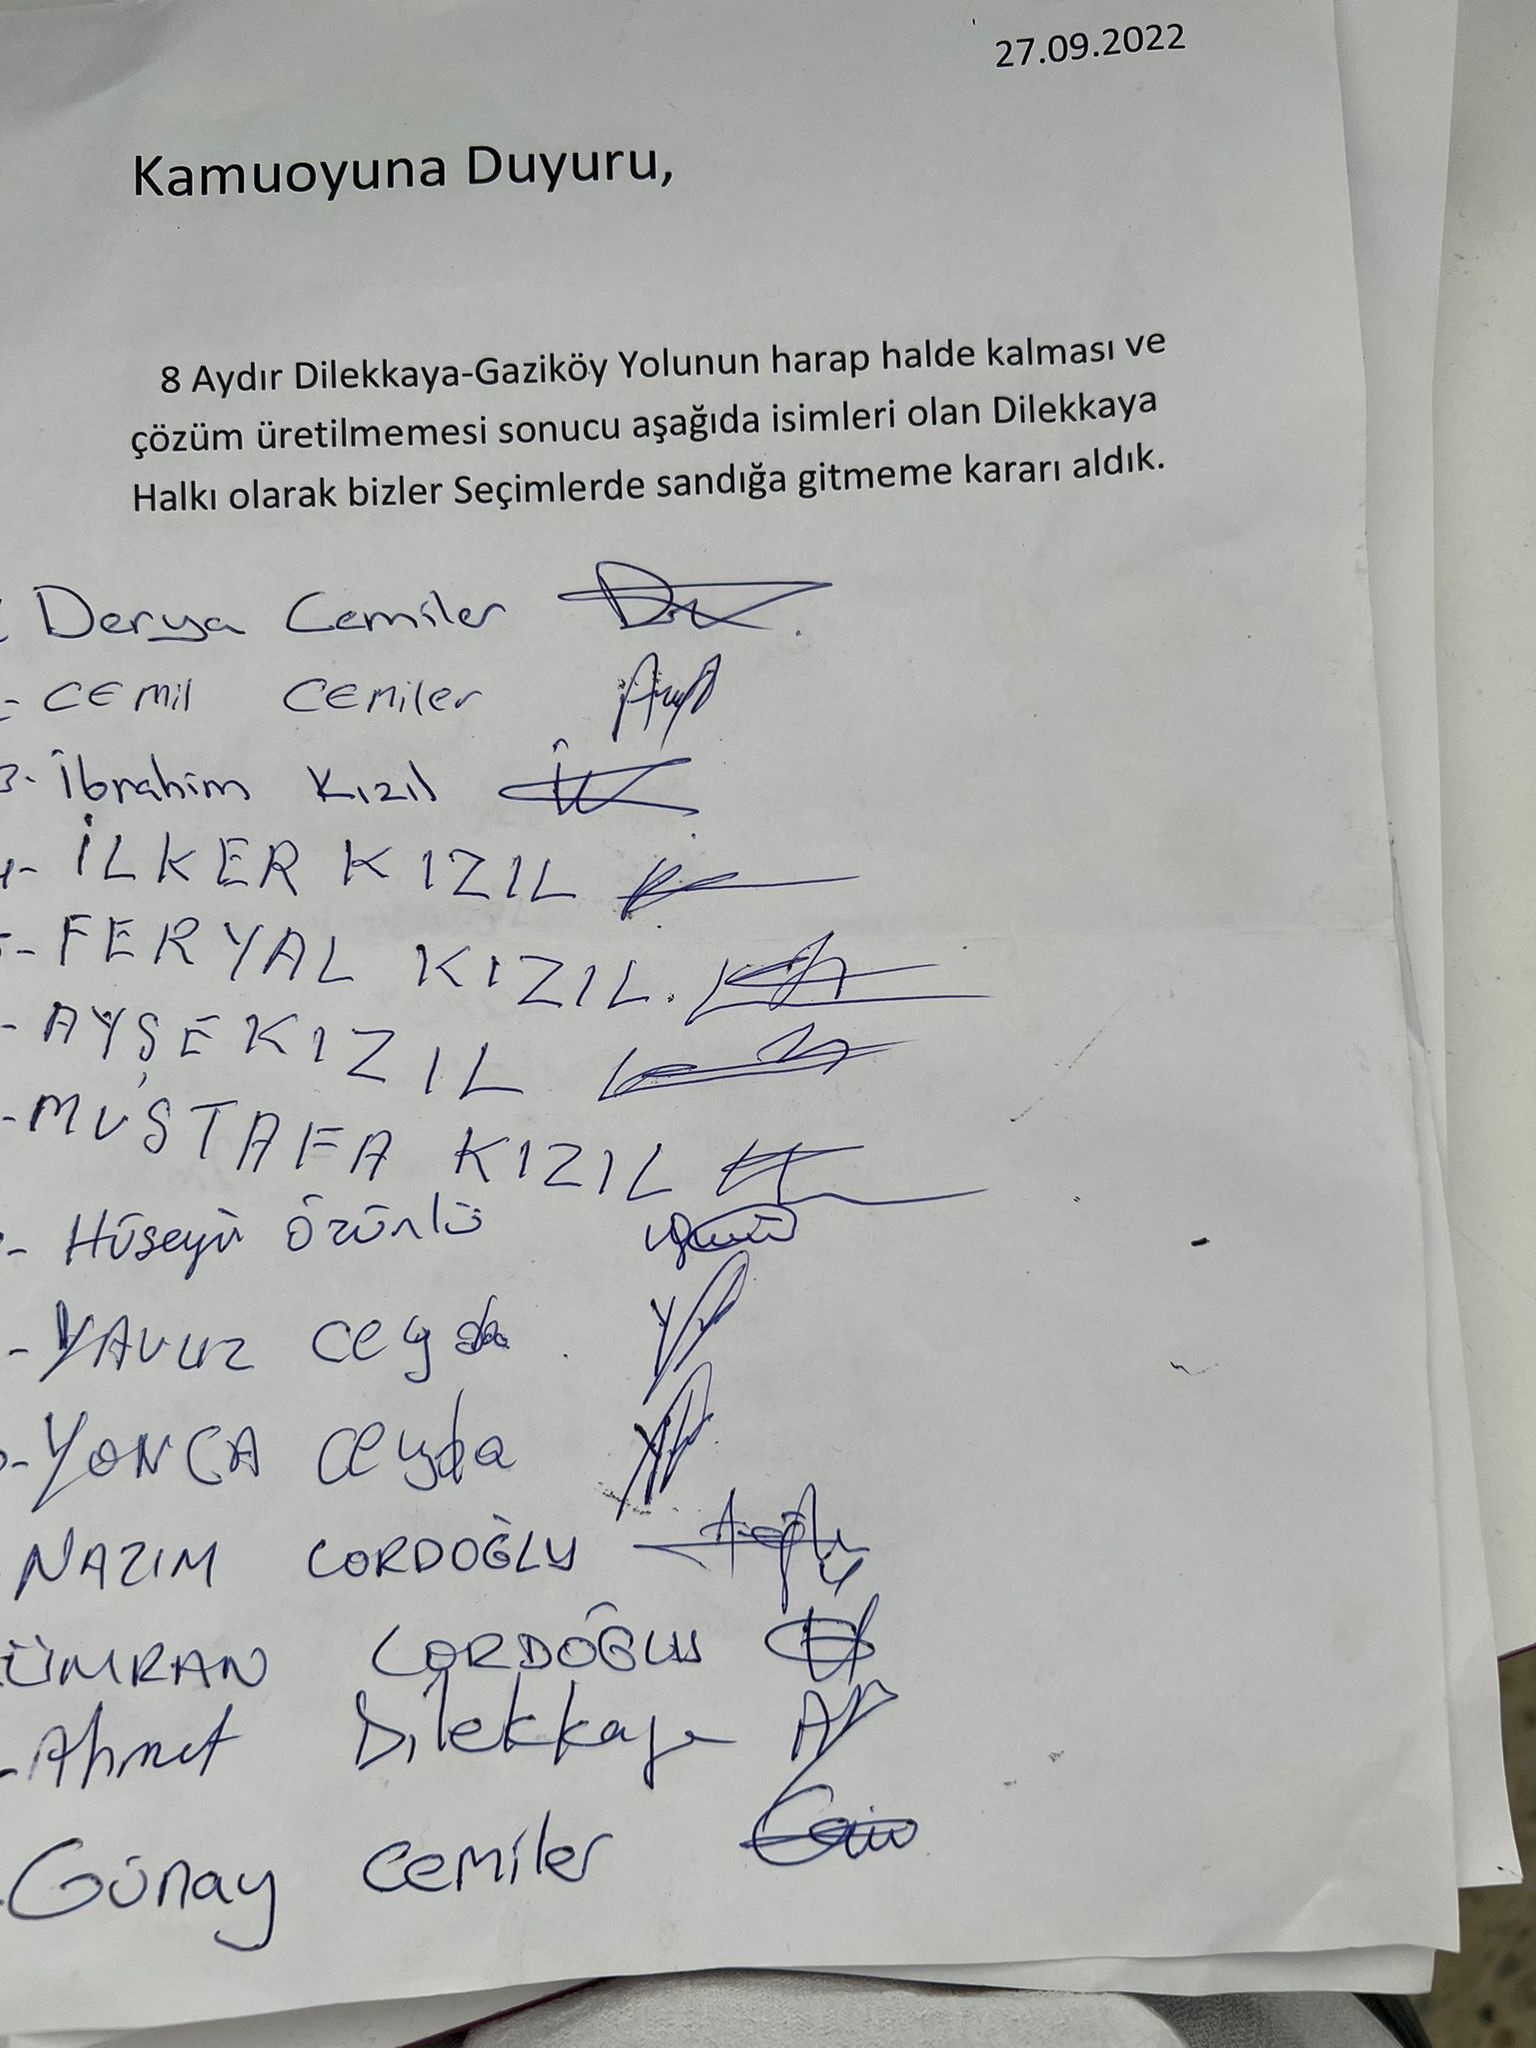 27.09.2022
Kamuoyuna Duyuru,
8 Aydır Dilekkaya-Gaziköy Yolunun harap halde kalması ve
çözüm üretilmemesi sonucu aşağıda isimleri olan Dilekkaya
Halkı olarak bizler Seçimlerde sandığa gitmeme kararı aldık.
Derya Cemiler
- CEMil CEMiler
3- İbrahim Kızıl
4- İLKER KIZIL
5- FERYAL KIZIL.
- AYŞE KIZIL
- MUSTAFA KIZIL
- Hüseyin Özünlü
- YAVUZ Ceyda
- YONCA Ceyda
NAZIM CORDOĞLU
ÜMRAN CORDOĞLU
- Ahmet Dilekkaya
Günay Cemiler